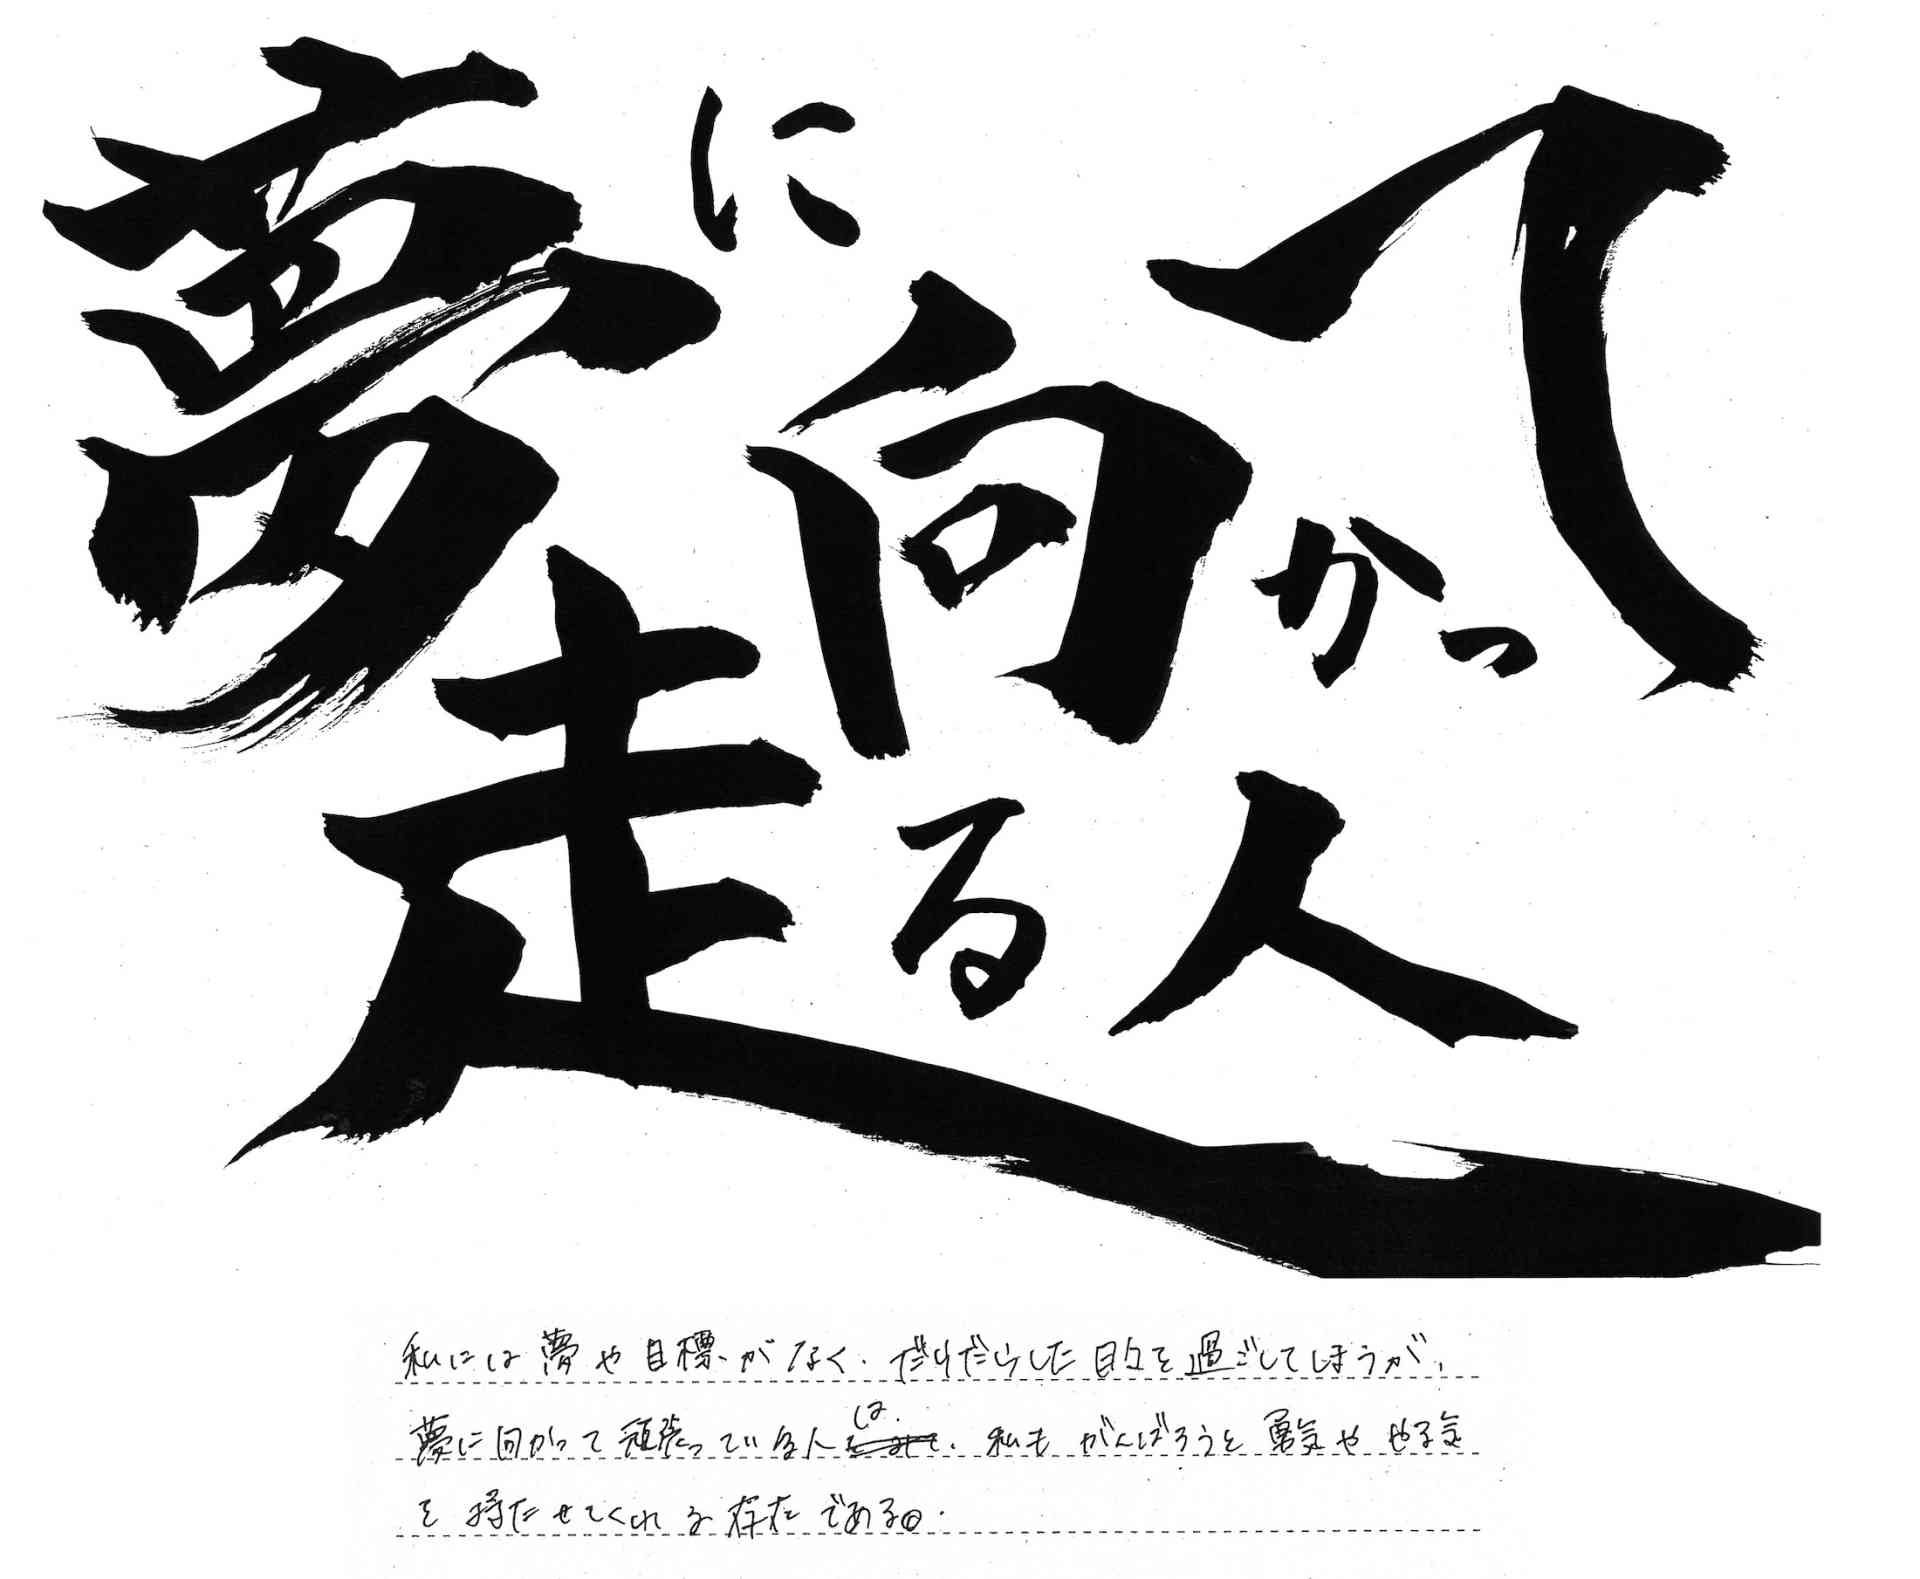 夢に向かって
走る人
私には夢や目標がなく、だらだらした日々を過ごしてしまうが、
夢に向かって頑張っている人は、私もがんばろうと勇気ややる気
を持たせてくれる存在である。